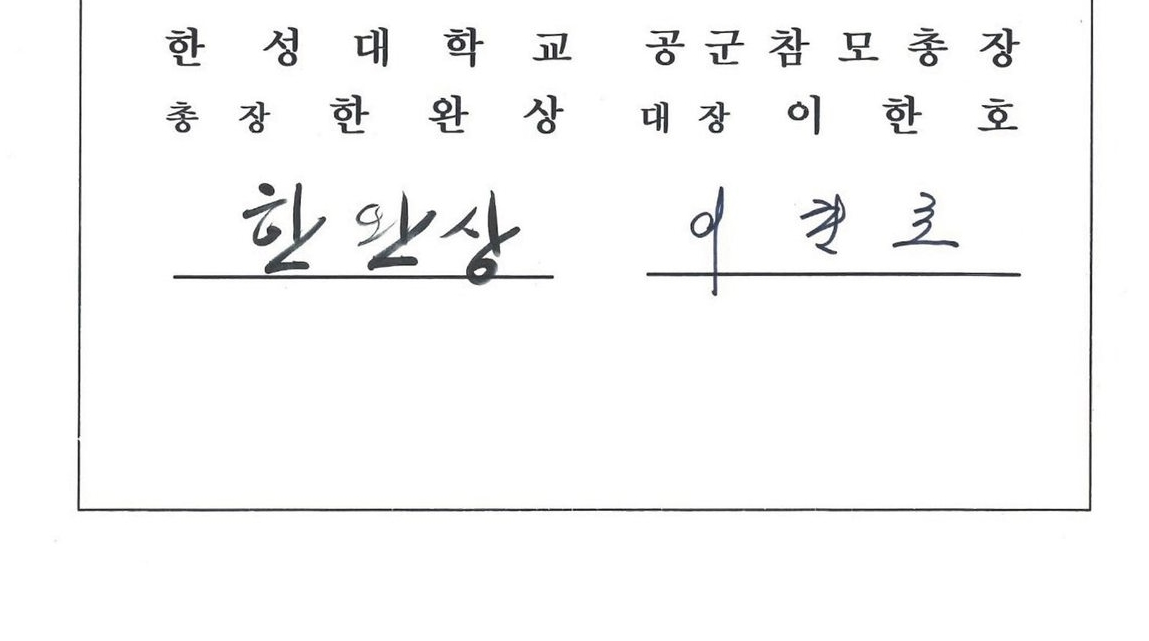 한 성 대 학 교 공 군 참 모 총 장
총 장 한 완 상 대 장 이 한 호
한 완 상 이 한 호